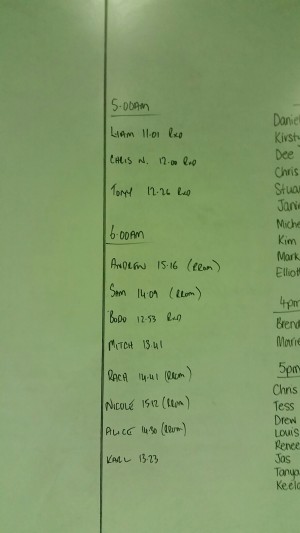 5:00AM
LIAM 11:01 RXD
CHRIS N. 12:00 RXD
TONY 12:26 RXD
6:00AM
ANDREW 15:16 (RRUM)
SAM 14:09 (RRUM)
BODO 12:53 RXD
MITCH 13:41
RACA 14:41 (RRUM)
NICOLE 15:12 (RRUM)
ALICE 14:30 (RRUM)
KARL 13:23
Danie
Kirsty
Dee
Chris
Stua
Jani
Miche
Kim
Mark
Elliot
4pm
Bren
Marie
5pm
Chris
Tess
Drew
Louis
Renee
Jas
Tanya
Keel